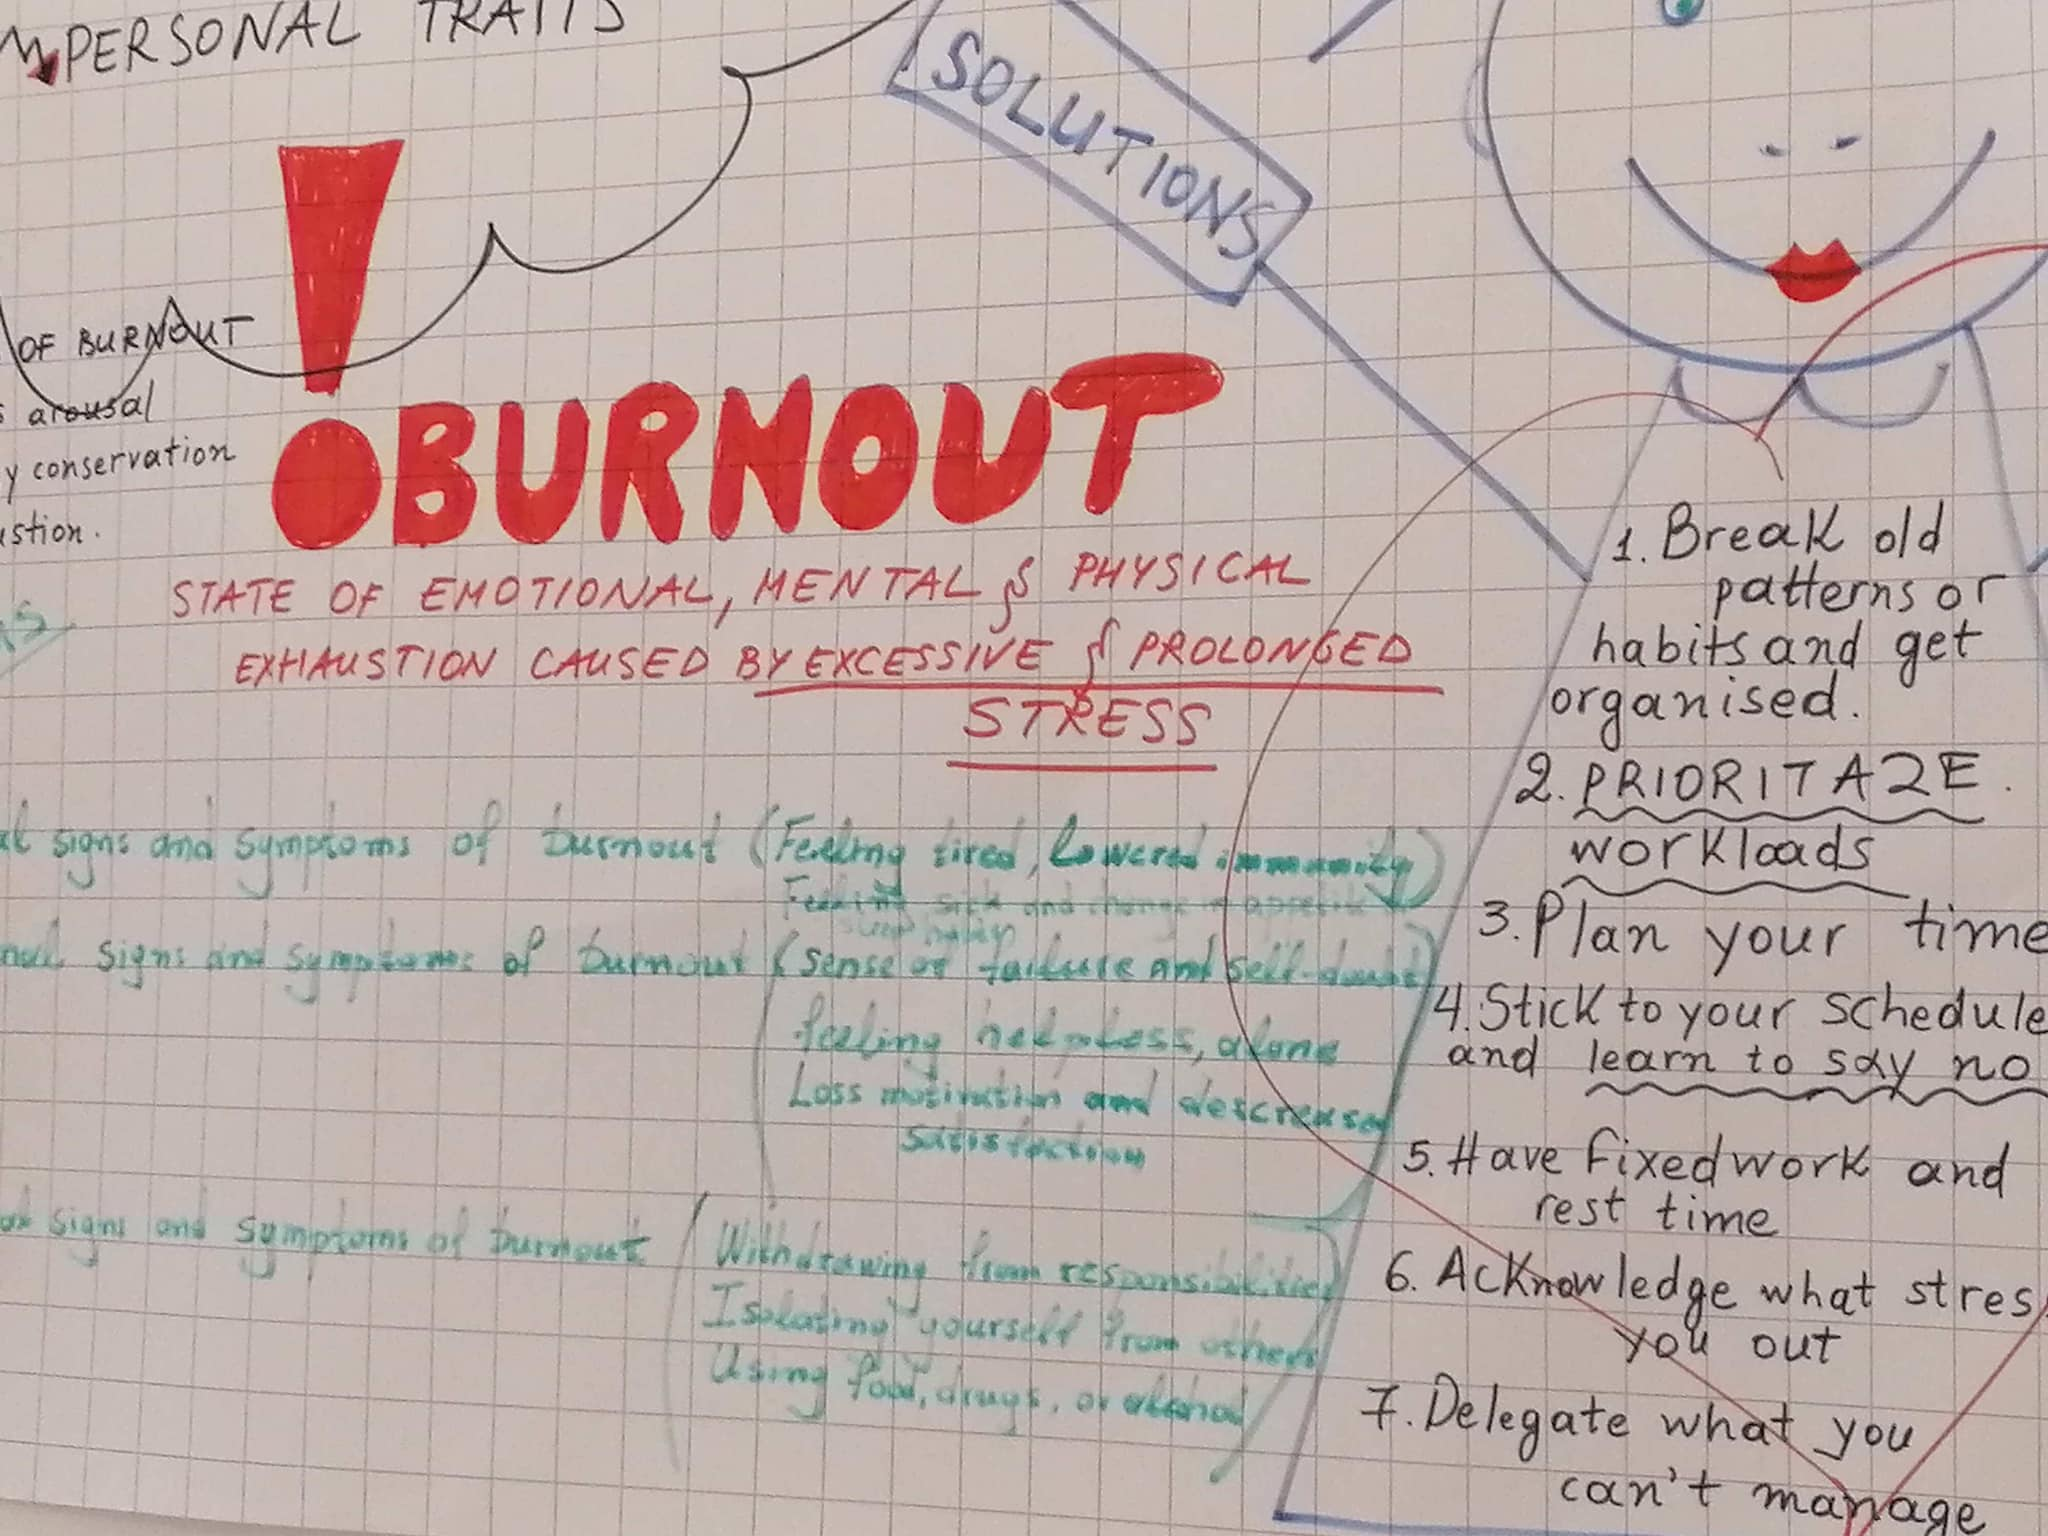 PERSONAL TRAITS
SOLUTIONS
OF BURNOUT
arousal
y conservation
ustion.
! BURNOUT
STATE OF EMOTIONAL, MENTAL & PHYSICAL
EXHAUSTION CAUSED BY EXCESSIVE & PROLONGED
STRESS
al signs and symptoms of burnout (Feeling tired, Lowered immunity)
Feeling sick and change appetite
nal signs and symptoms of burnout (sense of failure and self-doubt
feeling helpless, alone
Loss motivation and descreased
satisfaction
signs and symptoms of burnout
Withdrawing from responsibilities
Isolating yourself from others
Using food, drugs, or alcohol
1. Break old
patterns or
habits and get
organised.
2. PRIORITAZE.
workloads
3. Plan your time
4. Stick to your schedule
and learn to say no
5. Have fixed work and
rest time
6. Acknowledge what stres
you out
7. Delegate what you
can't manage